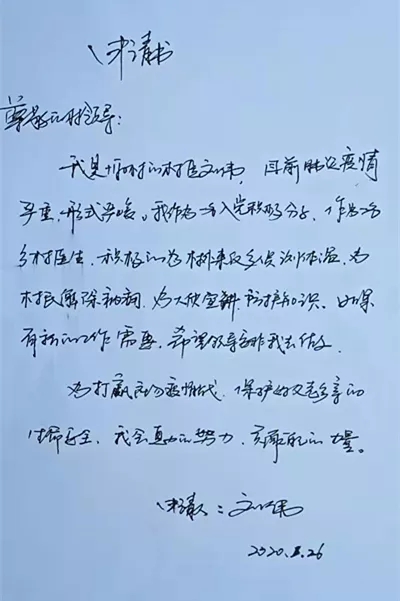 请书
尊敬的村领导:
我是村的村医文伟,目前肺炎疫情
严重,形式严峻。我作为一名入党积极分子,作为一名
乡村医生,积极的为村来返乡人员测体温,为
村民解除病,为大伙宣讲防护知识。如果
有新的工作需要,希望领导安排我去做。
为打赢疫情战,保护好父老乡亲的
生命安全,我会尽的努力,贡献我的力量。
请人:文伟
2020.1.26